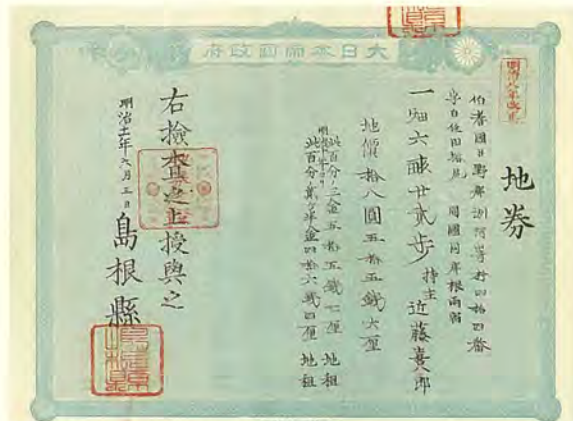 大日本帝國政府
明治九年改正
地券
伯耆國日野郡訓阿寄村四拾四番
字白
同國同郡根雨宿
一畑六畝廿貳歩
持主 近藤喜八郎
地價拾八圓五拾五錢六厘
此百分ノ三金五拾五錢七厘 地租
明治十年ヨリ
此百分ノ貳ヶ半金四拾六錢四厘 地租
右檢査之上授與之
明治十一年六月三日
島根縣